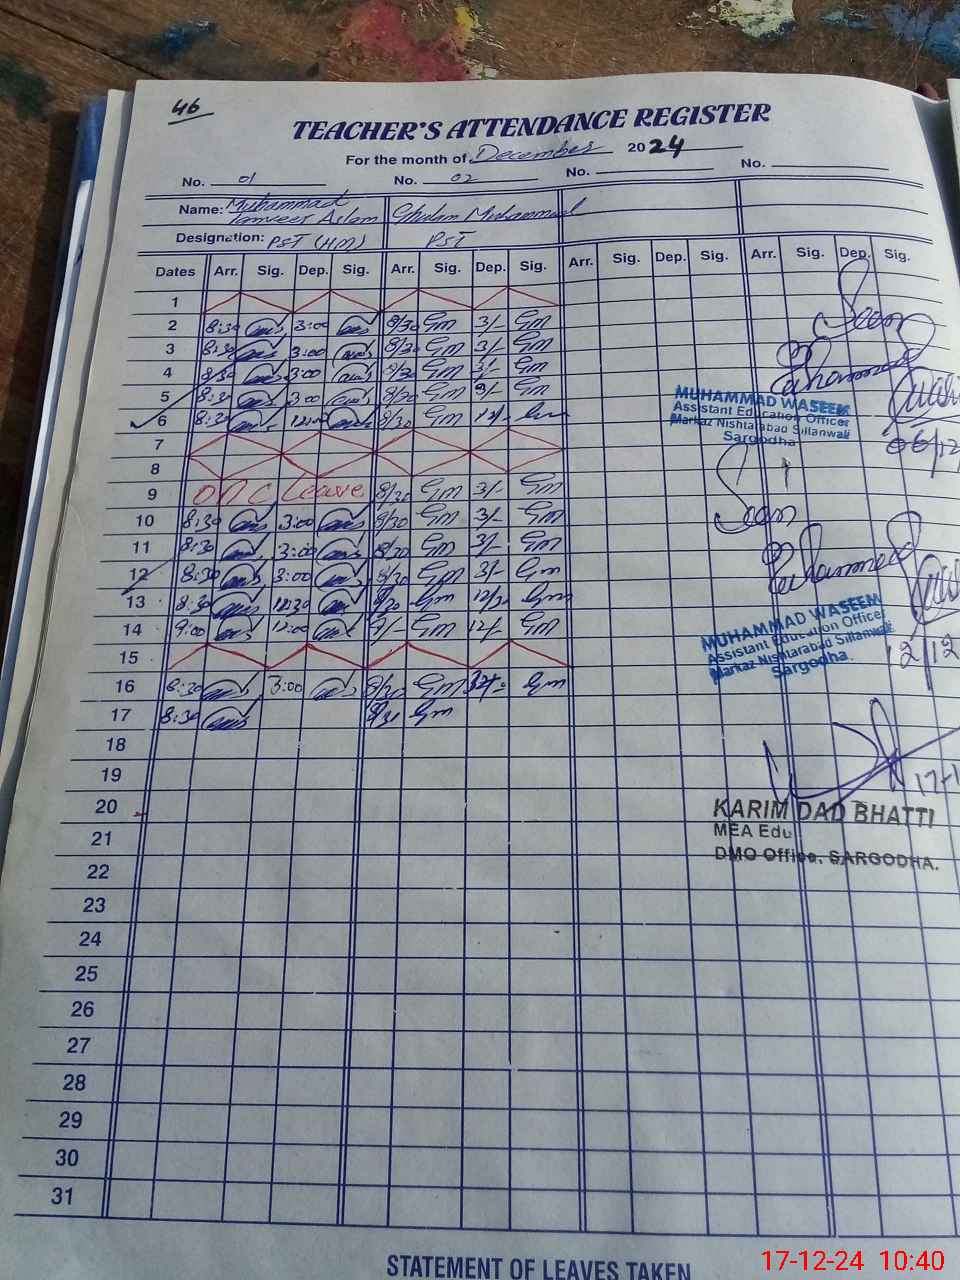 46
TEACHER'S ATTENDANCE REGISTER
For the month of December 2024
No. 01 No. 02 No. No.
Name: Muhammad Tanveer Aslam Ghulam Muhammad
Designation: PST (HM) PST
Dates Arr. Sig. Dep. Sig. Arr. Sig. Dep. Sig. Arr. Sig. Dep. Sig. Arr. Sig. Dep. Sig.
1
2 8:30 3:00 8/30 GM 3/- GM
3 8:30 3:00 8/30 GM 3/- GM
4 8:30 3:00 8/30 GM 3/- GM
5 8:30 3:00 8/30 GM 3/- GM
6 8:30 12:00 8/30 GM 12/- GM
7
8
9 on C leave 8/30 GM 3/- GM
10 8:30 3:00 8/30 GM 3/- GM
11 8:30 3:00 8/30 GM 3/- GM
12 8:30 3:00 8/30 GM 3/- GM
13 8:30 8/30 GM 12/30 GM
14 9:00 12:00 9/- GM 12/- GM
15
16 8:30 3:00 8/30 GM GM
17 8:30 GM
18
19
20
21
22
23
24
25
26
27
28
29
30
31
Seen
MUHAMMAD WASEEM
Assistant Education Officer
Markaz Nishtarabad Sillanwali
Sargodha
06/12
Seen
MUHAMMAD WASEEM
Assistant Education Officer
Markaz Nishtarabad Sillanwali
Sargodha
12/12
17-1
KARIM DAD BHATTI
MEA Edu
DMO Office, SARGODHA.
STATEMENT OF LEAVES TAKEN
17-12-24 10:40